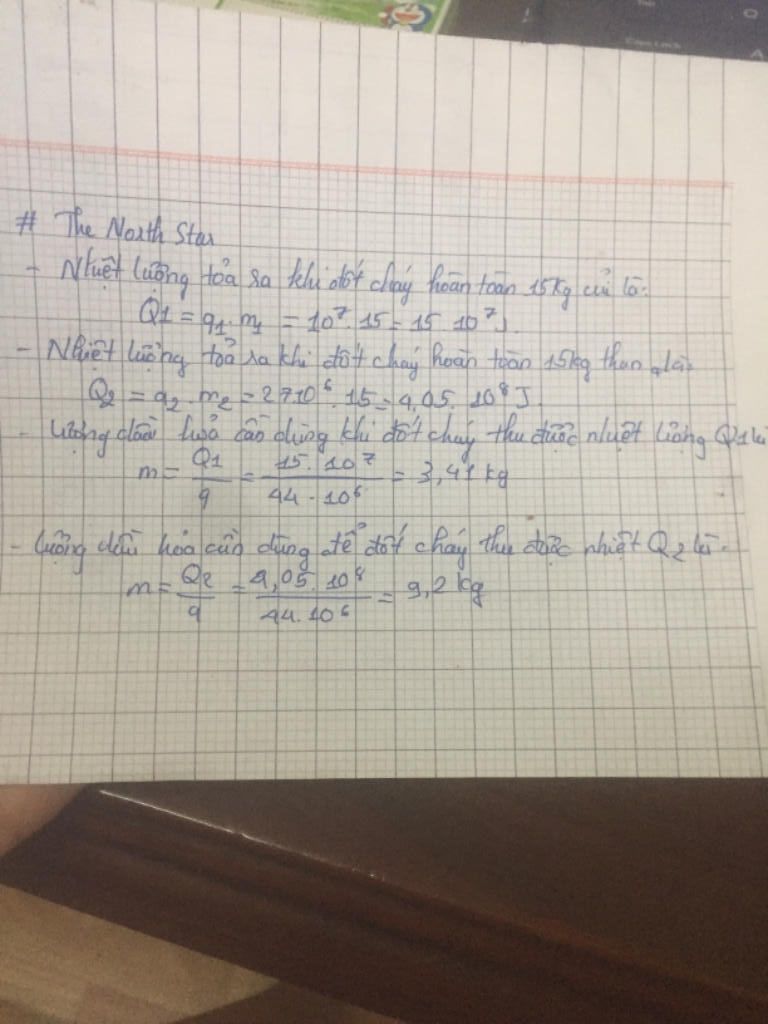 # The North Star
- Nhiệt lượng tỏa ra khi đốt cháy hoàn toàn 15kg củi là:
Q1 = q1.m1 = 10⁷.15 = 15.10⁷J.
- Nhiệt lượng tỏa ra khi đốt cháy hoàn toàn 15kg than là:
Q2 = q2.m2 = 27.10⁶.15 = 4,05.10⁸J
- Lượng dầu hoả cần dùng khi đốt cháy thu được nhiệt lượng Q1 là
m = Q1/q = 15.10⁷/44.10⁶ = 3,41 kg
- Lượng dầu hỏa cần dùng để đốt cháy thu được nhiệt Q2 là:
m = Q2/q = 4,05.10⁸/44.10⁶ = 9,2 kg